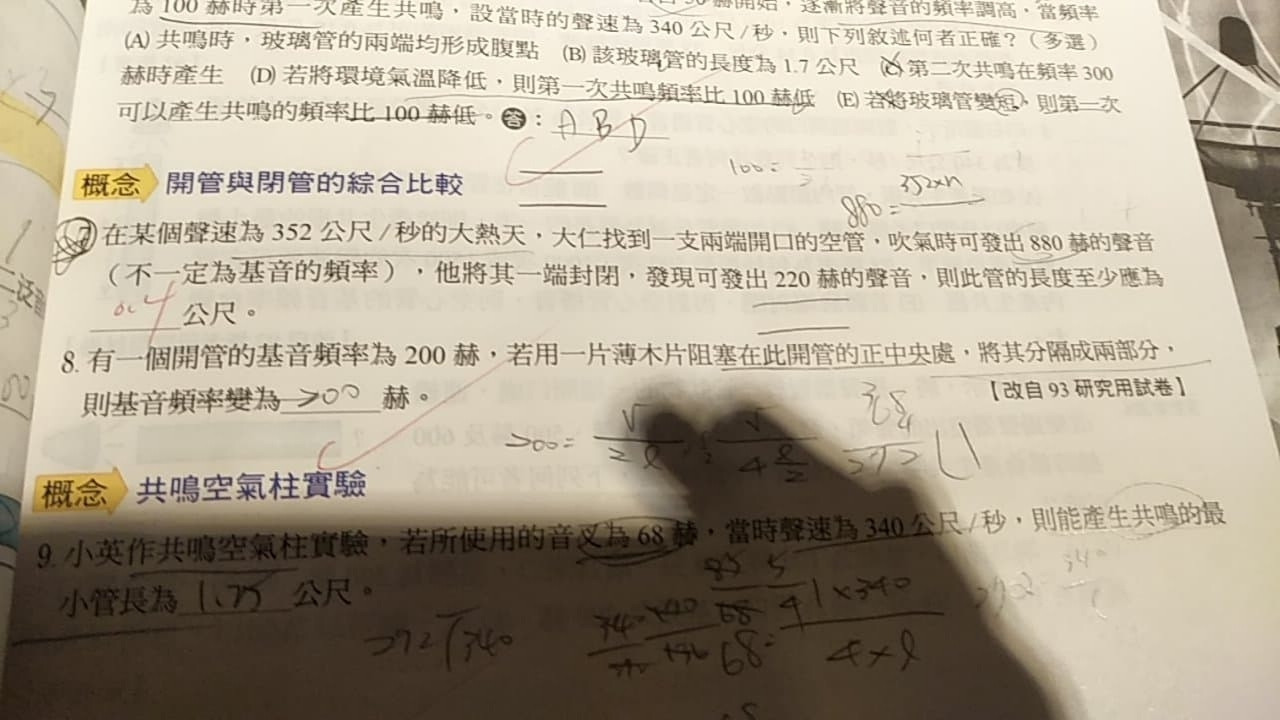 為 100 赫時第一次產生共鳴，設當時的聲速為 340 公尺/秒，則下列敘述何者正確？（多選）
開始，逐漸將聲音的頻率調高，當頻率
(A) 共鳴時，玻璃管的兩端均形成腹點 (B) 該玻璃管的長度為 1.7 公尺 (C) 第二次共鳴在頻率 300
赫時產生 (D) 若將環境氣溫降低，則第一次共鳴頻率比 100 赫低 (E) 若將玻璃管變短，則第一次
可以產生共鳴的頻率比 100 赫低。答：A B D
100=
880= 352×n
概念 開管與閉管的綜合比較
7 在某個聲速為 352 公尺/秒的大熱天，大仁找到一支兩端開口的空管，吹氣時可發出 880 赫的聲音
（不一定為基音的頻率），他將其一端封閉，發現可發出 220 赫的聲音，則此管的長度至少應為
0.4 公尺。
8. 有一個開管的基音頻率為 200 赫，若用一片薄木片阻塞在此開管的正中央處，將其分隔成兩部分，
則基音頻率變為 200 赫。
【改自 93 研究用試卷】
200=
概念 共鳴空氣柱實驗
9. 小英作共鳴空氣柱實驗，若所使用的音叉為 68 赫，當時聲速為 340 公尺/秒，則能產生共鳴的最
小管長為 1.25 公尺。
272 340
68= 1×340
4×l